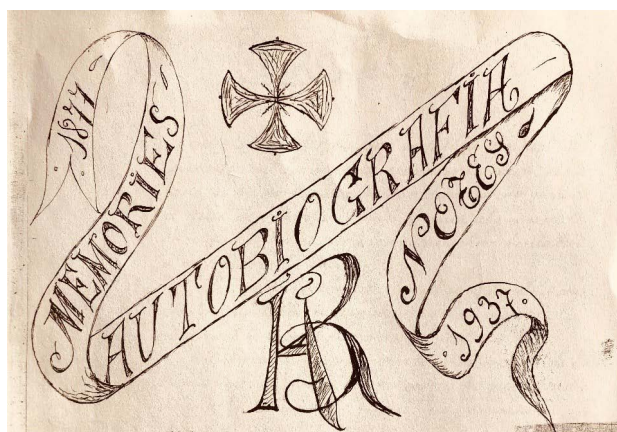 1877 -
MEMORIES -
AUTOBIOGRAFIA
NOTES
- 1937 -